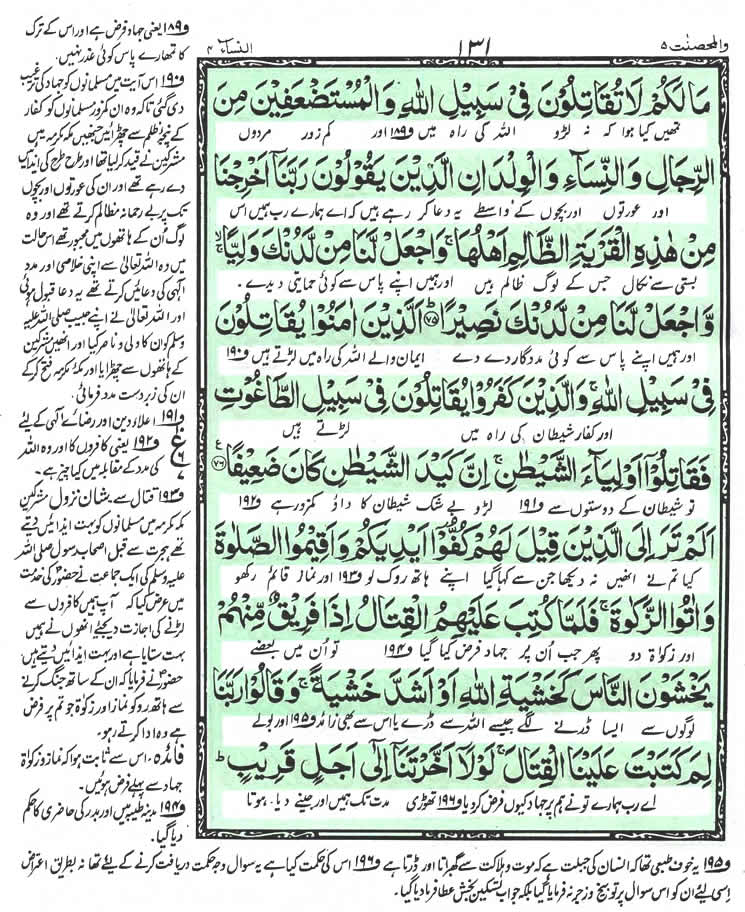 والمحصنٰت ۵
۱۳۱
النساء ۴
مَا لَكُمْ لَا تُقَاتِلُوْنَ فِیْ سَبِیْلِ اللّٰهِ وَالْمُسْتَضْعَفِیْنَ مِنَ
تمھیں کیا ہوا کہ نہ لڑو اللہ کی راہ میں و۱۸۹ اور کم زور مردوں
الرِّجَالِ وَالنِّسَآءِ وَالْوِلْدَانِ الَّذِیْنَ یَقُوْلُوْنَ رَبَّنَاۤ اَخْرِجْنَا
اور عورتوں اور بچوں کے واسطے یہ دعا کر رہے ہیں کہ اے ہمارے رب ہمیں اس
مِنْ هٰذِهِ الْقَرْیَةِ الظَّالِمِ اَهْلُهَا ۚ وَاجْعَلْ لَّنَا مِنْ لَّدُنْكَ وَلِیًّا ۙ
بستی سے نکال جس کے لوگ ظالم ہیں اور ہمیں اپنے پاس سے کوئی حمایتی دیدے.
وَّاجْعَلْ لَّنَا مِنْ لَّدُنْكَ نَصِیْرًا ؕ﴿۷۵﴾ اَلَّذِیْنَ اٰمَنُوْا یُقَاتِلُوْنَ
اور ہمیں اپنے پاس سے کوئی مددگار دے دے ایمان والے اللہ کی راہ میں لڑتے ہیں و۱۹۰
فِیْ سَبِیْلِ اللّٰهِ ۚ وَالَّذِیْنَ كَفَرُوْا یُقَاتِلُوْنَ فِیْ سَبِیْلِ الطَّاغُوْتِ
اور کفار شیطان کی راہ میں لڑتے ہیں
فَقَاتِلُوْۤا اَوْلِیَآءَ الشَّیْطٰنِ ۚ اِنَّ كَیْدَ الشَّیْطٰنِ كَانَ ضَعِیْفًا ﴿۷۶﴾
تو شیطان کے دوستوں سے و۱۹۱ لڑو بے شک شیطان کا داؤ کمزور ہے و۱۹۲
اَلَمْ تَرَ اِلَی الَّذِیْنَ قِیْلَ لَهُمْ كُفُّوْۤا اَیْدِیَكُمْ وَاَقِیْمُوا الصَّلٰوةَ
کیا تم نے انھیں نہ دیکھا جن سے کہا گیا اپنے ہاتھ روک لو و۱۹۳ اور نماز قائم رکھو
وَاٰتُوا الزَّكٰوةَ ۚ فَلَمَّا كُتِبَ عَلَیْهِمُ الْقِتَالُ اِذَا فَرِیْقٌ مِّنْهُمْ
اور زکوٰۃ دو پھر جب اُن پر جہاد فرض کیا گیا و۱۹۴ تو اُن میں بعضے
یَخْشَوْنَ النَّاسَ كَخَشْیَةِ اللّٰهِ اَوْ اَشَدَّ خَشْیَةً ۚ وَقَالُوْا رَبَّنَا
لوگوں سے ایسا ڈرنے لگے جیسے اللہ سے ڈرے یا اس سے بھی زائد و۱۹۵ اور بولے
لِمَ كَتَبْتَ عَلَیْنَا الْقِتَالَ ۚ لَوْلَاۤ اَخَّرْتَنَاۤ اِلٰۤی اَجَلٍ قَرِیْبٍ ؕ
اے رب ہمارے تو نے ہم پر جہاد کیوں فرض کر دیا و۱۹۶ تھوڑی مدت تک ہمیں اور جینے دیا ہوتا
و۱۸۹ یعنی جہاد فرض ہے اور اس کے ترک
کا تمھارے پاس کوئی عذر نہیں.
و۱۹۰ اس آیت میں مسلمانوں کو جہاد کی ترغیب
دی گئی تاکہ وہ ان کمزور مسلمانوں کو کفار
کے پنجۂ ظلم سے چھڑائیں جنھیں مکہ مکرمہ میں
مشرکین نے قید کر لیا تھا اور طرح طرح کی ایذائیں
دے رہے تھے اور ان کی عورتوں اور بچوں
تک پر بے رحمانہ مظالم کرتے تھے اور وہ
لوگ اُن کے ہاتھوں میں مجبور تھے اس حالت
میں وہ اللہ تعالیٰ سے اپنی خلاصی اور مدد
الٰہی کی دعائیں کرتے تھے یہ دعا قبول ہوئی
اور اللہ تعالیٰ نے اپنے حبیب صلی اللہ علیہ
وسلم کو ان کا ولی و ناصر کیا اور انھیں مشرکین
کے ہاتھوں سے چھڑایا اور مکہ مکرمہ فتح کر کے
ان کی زبردست مدد فرمائی.
و۱۹۱ اعلاءِ دین اور رضائے الٰہی کے لئے
و۱۹۲ یعنی کافروں کا اور وہ اللہ
کی مدد کے مقابلہ میں کیا چیز ہے.
ع
۶
۷
و۱۹۳ قتال سے شان نزول مشرکین
مکہ مکرمہ میں مسلمانوں کو بہت ایذائیں دیتے
تھے ہجرت سے قبل اصحاب رسول صلی اللہ
علیہ وسلم کی ایک جماعت نے حضور کی خدمت
میں عرض کیا کہ آپ ہمیں کافروں سے
لڑنے کی اجازت دیجئے انھوں نے ہمیں
بہت ستایا ہے اور بہت ایذائیں دیتے ہیں
حضور نے فرمایا کہ ان کے ساتھ جنگ کرنے
سے ہاتھ روکو نماز اور زکوٰۃ جو تم پر فرض
ہے وہ ادا کرتے رہو.
فائدہ. اس سے ثابت ہوا کہ نماز و زکوٰۃ
جہاد سے پہلے فرض ہوئیں.
و۱۹۴ مدینہ طیبہ میں اور بدر کی حاضری کا حکم
دیا گیا.
و۱۹۵ یہ خوف طبعی تھا کہ انسان کی جبلت ہے کہ موت و ہلاکت سے گھبراتا اور ڈرتا ہے و۱۹۶ اس کی حکمت کیا ہے یہ سوال وجہ حکمت دریافت کرنے کے لئے تھا نہ بطریق اعتراض
اسی لئے ان کو اس سوال پر توبیخ و زجر نہ فرمایا گیا بلکہ جواب تسکین بخش عطا فرما دیا گیا.